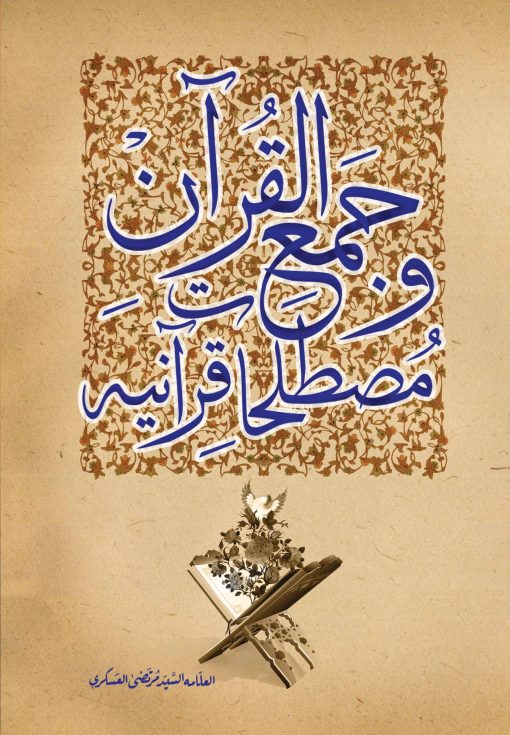 جَمعُ القُرآنْ
وَ
مُصطلحاتِ قِرآنيه
العلّامه السَّيّد مُرتَضىٰ العَسكري